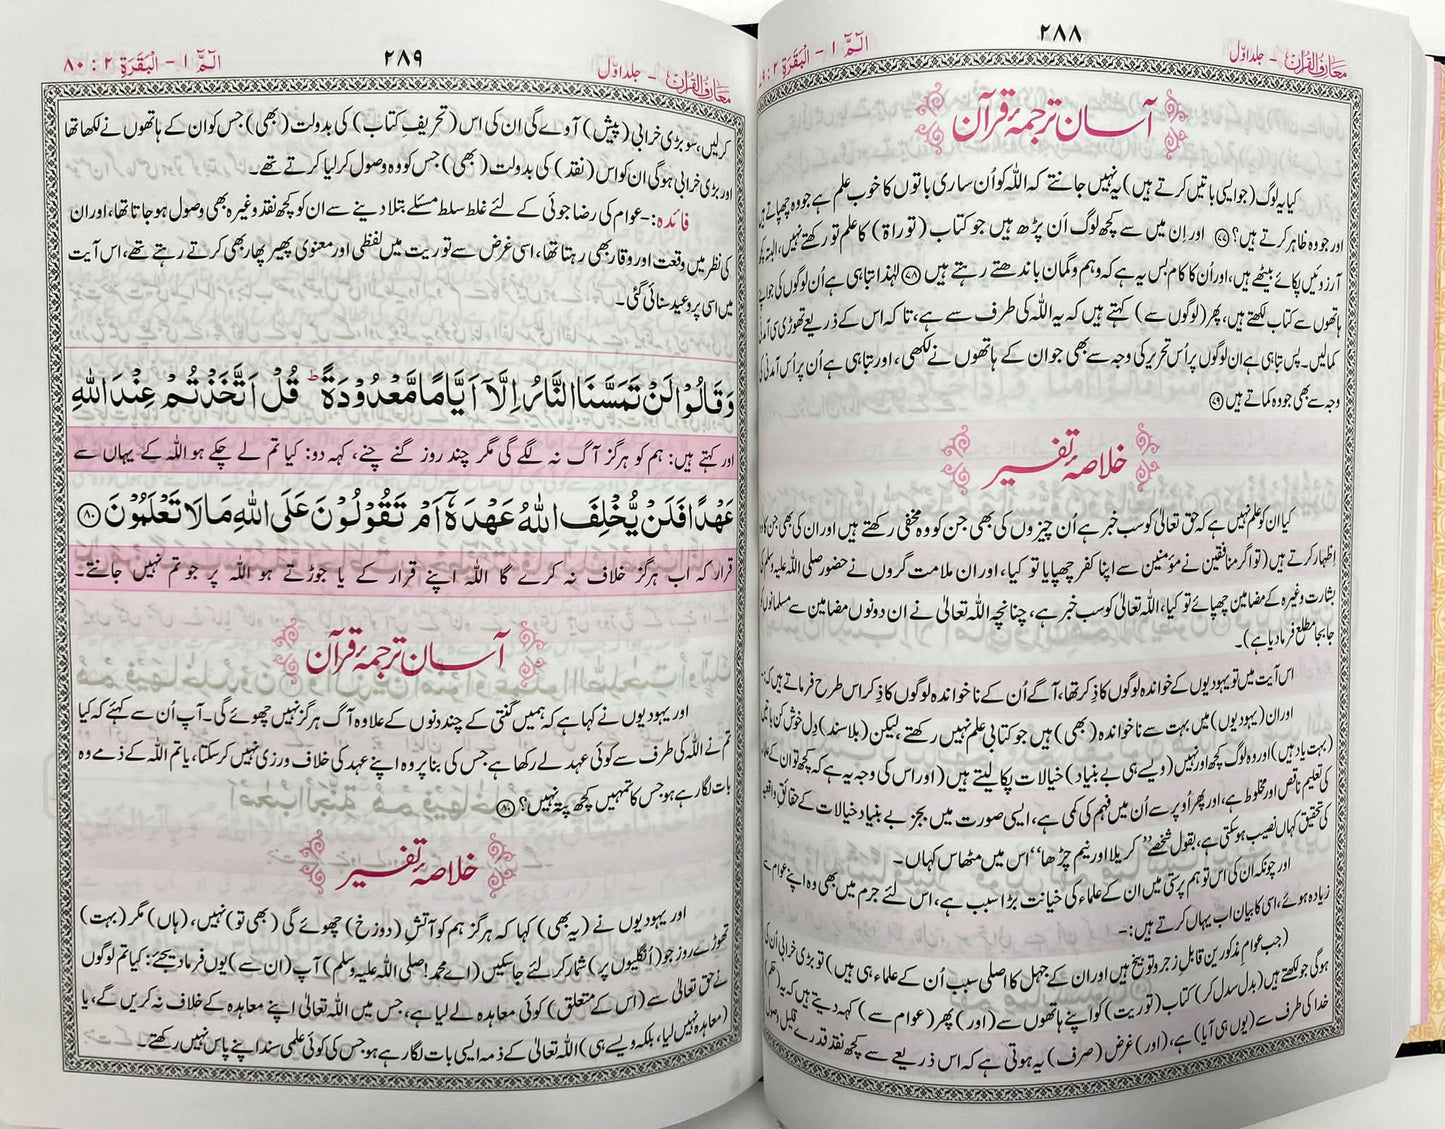 معارف القرآن - جلد اوّل
۲۸۸
الٓمّٓ ۱ - البقرة ۲ :
آسان ترجمۂ قرآن
کیا یہ لوگ (جو ایسی باتیں کرتے ہیں) یہ نہیں جانتے کہ اللہ کو اُن ساری باتوں کا خوب علم ہے جو وہ چھپاتے ہیں
اور جو وہ ظاہر کرتے ہیں؟ ﴿۷۷﴾ اور اِن میں سے کچھ لوگ اُن پڑھ ہیں جو کتاب (توراۃ) کا علم تو رکھتے نہیں، البتہ کچھ
آرزوئیں پکائے بیٹھے ہیں، اور اُن کا کام بس یہ ہے کہ وہم و گمان باندھتے رہتے ہیں ﴿۷۸﴾ لہٰذا تباہی ہے اُن لوگوں کی جو اپنے
ہاتھوں سے کتاب لکھتے ہیں، پھر (لوگوں سے) کہتے ہیں کہ یہ اللہ کی طرف سے ہے، تاکہ اس کے ذریعے تھوڑی سی آمدنی
کمالیں۔ پس تباہی ہے ان لوگوں پر اُس تحریر کی وجہ سے بھی جو ان کے ہاتھوں نے لکھی، اور تباہی ہے اُن پر اُس آمدنی کی
وجہ سے بھی جو وہ کماتے ہیں ﴿۷۹﴾
خلاصۂ تفسیر
کیا ان کو علم نہیں ہے کہ حق تعالیٰ کو سب خبر ہے اُن چیزوں کی بھی جن کو وہ مخفی رکھتے ہیں اور ان کی بھی جن کا وہ
اظہار کرتے ہیں (تو اگر منافقین نے مؤمنین سے اپنا کفر چھپایا تو کیا، اور ان ملامت گروں نے حضور صلی اللہ علیہ وسلم کی
بشارت وغیرہ کے مضامین چھپائے تو کیا، اللہ تعالیٰ کو سب خبر ہے، چنانچہ اللہ تعالیٰ نے ان دونوں مضامین سے مسلمانوں کو
جا بجا مطلع فرما دیا ہے)۔
اس آیت میں تو یہودیوں کے خواندہ لوگوں کا ذکر تھا، آگے اُن کے ناخواندہ لوگوں کا ذکر اس طرح فرماتے ہیں کہ:-
اور ان (یہودیوں) میں بہت سے ناخواندہ (بھی) ہیں جو کتابی علم نہیں رکھتے، لیکن (بلا سند) دِل خوش کن باتیں
(بہت یاد ہیں) اور وہ لوگ کچھ اور نہیں (ویسے ہی بے بنیاد) خیالات پکا لیتے ہیں (اور اس کی وجہ یہ ہے کہ کچھ تو ان کے علماء
کی تعلیم ناقص اور مخلوط ہے، اور پھر اُوپر سے اُن میں فہم کی کمی ہے، ایسی صورت میں بجز بے بنیاد خیالات کے حقائقِ واقعیہ
کی تحقیق کہاں نصیب ہوسکتی ہے، بقول شخصے ”کریلا اور نیم چڑھا“ اس میں مٹھاس کہاں۔
اور چونکہ ان کی اس توہم پرستی میں ان کے علماء کی خیانت بڑا سبب ہے، اس لئے جرم میں بھی وہ اپنے عوام سے
زیادہ ہوئے، اسی کا بیان اب یہاں کرتے ہیں:-
(جب عوام مذکورین قابلِ زجر و توبیخ ہیں اور ان کے جہل کا اصلی سبب اُن کے علماء ہی ہیں) تو بڑی خرابی اُن کی
ہوگی جو لکھتے ہیں (بدل سدل کر) کتاب (توریت) کو اپنے ہاتھوں سے (اور) پھر (عوام سے) کہہ دیتے ہیں کہ یہ (حکم)
خدا کی طرف سے (یوں ہی آیا) ہے، (اور) غرض (صرف) یہ ہوتی ہے کہ اس ذریعے سے کچھ نقد قدرے قلیل وصول
معارف القرآن - جلد اوّل
۲۸۹
الٓمّٓ ۱ - البقرة ۲ : ۸۰
کرلیں، سو بڑی خرابی (پیش) آوے گی ان کی اس (تحریفِ کتاب) کی بدولت (بھی) جس کو ان کے ہاتھوں نے لکھا تھا
اور بڑی خرابی ہوگی ان کو اس (نقد) کی بدولت (بھی) جس کو وہ وصول کرلیا کرتے تھے۔
فائدہ:- عوام کی رضا جوئی کے لئے غلط سلط مسئلے بتلا دینے سے ان کو کچھ نقد وغیرہ بھی وصول ہوجاتا تھا، اور ان
کی نظر میں وقعت اور وقار بھی رہتا تھا، اسی غرض سے توریت میں لفظی اور معنوی پھیر پھار بھی کرتے رہتے تھے، اس آیت
میں اسی پر وعید سنائی گئی۔
وَقَالُوۡا لَنۡ تَمَسَّنَا النَّارُ اِلَّاۤ اَيَّامًا مَّعۡدُوۡدَةً ؕ قُلۡ اَتَّخَذۡتُمۡ عِنۡدَ اللّٰهِ
اور کہتے ہیں: ہم کو ہرگز آگ نہ لگے گی مگر چند روز گنے چنے، کہہ دو: کیا تم لے چکے ہو اللہ کے یہاں سے
عَهۡدًا فَلَنۡ يُّخۡلِفَ اللّٰهُ عَهۡدَهٗۤ اَمۡ تَقُوۡلُوۡنَ عَلَى اللّٰهِ مَا لَا تَعۡلَمُوۡنَ ﴿۸۰﴾
قرار کہ اب ہرگز خلاف نہ کرے گا اللہ اپنے قرار کے یا جوڑتے ہو اللہ پر جو تم نہیں جانتے۔
آسان ترجمۂ قرآن
اور یہودیوں نے کہا ہے کہ ہمیں گنتی کے چند دنوں کے علاوہ آگ ہرگز نہیں چھوئے گی۔ آپ اُن سے کہئے کہ کیا
تم نے اللہ کی طرف سے کوئی عہد لے رکھا ہے جس کی بنا پر وہ اپنے عہد کی خلاف ورزی نہیں کرسکتا، یا تم اللہ کے ذمے وہ
بات لگا رہے ہو جس کا تمہیں کچھ پتہ نہیں؟ ﴿۸۰﴾
خلاصۂ تفسیر
اور یہودیوں نے (یہ بھی) کہا کہ ہرگز ہم کو آتشِ (دوزخ) چھوئے گی (بھی تو) نہیں، (ہاں) مگر (بہت)
تھوڑے روز جو (اُنگلیوں پر) شمار کرلئے جاسکیں (اے محمد! صلی اللہ علیہ وسلم) آپ (ان سے) یوں فرما دیجئے: کیا تم لوگوں
نے حق تعالیٰ سے (اس کے متعلق) کوئی معاہدہ لے لیا ہے، جس میں اللہ تعالیٰ اپنے معاہدہ کے خلاف نہ کریں گے، یا
(معاہدہ نہیں لیا، بلکہ ویسے ہی) اللہ تعالیٰ کے ذمہ ایسی بات لگا رہے ہو جس کی کوئی علمی سند اپنے پاس نہیں رکھتے۔